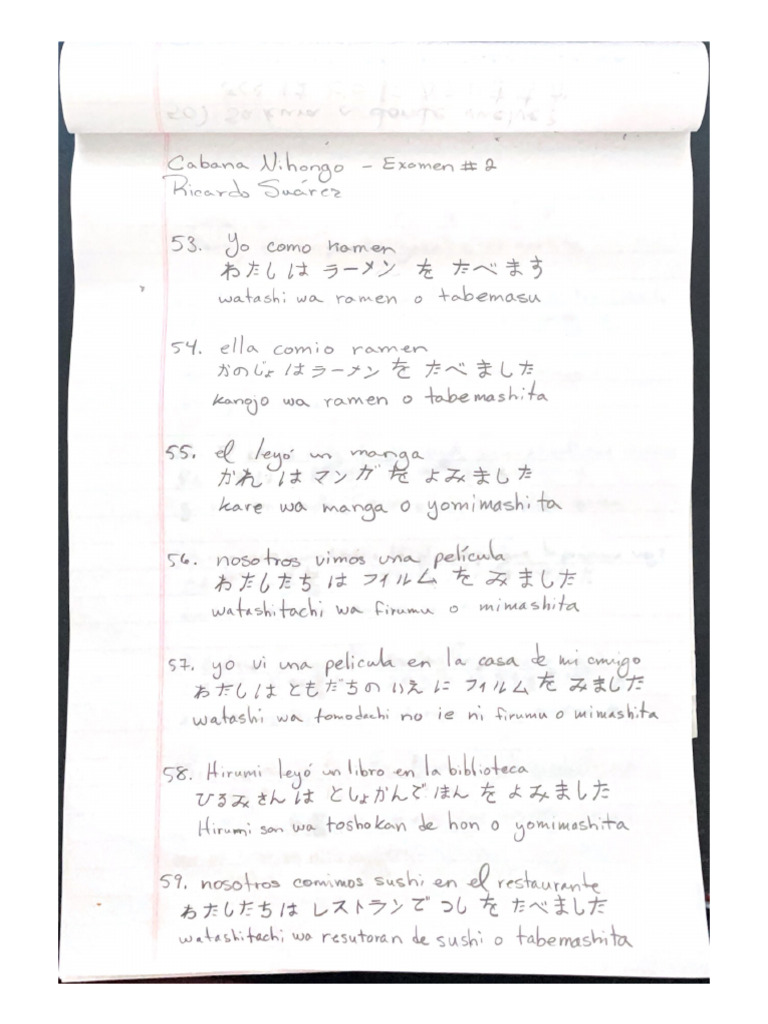 Cabana Nihongo - Examen # 2
Ricardo Suárez
53. Yo como ramen
わたしは ラーメン を たべます
watashi wa ramen o tabemasu
54. ella comio ramen
かのじょ は ラーメン を たべ ました
kanojo wa ramen o tabemashita
55. el leyó un manga
かれ は マンガ を よみました
kare wa manga o yomimashita
56. nosotros vimos una película
わたしたち は フィルム を みました
watashitachi wa firumu o mimashita
57. yo vi una pelicula en la casa de mi amigo
わたしは ともだちの いえ に フィルム を みました
watashi wa tomodachi no ie ni firumu o mimashita
58. Hirumi leyó un libro en la biblioteca
ひるみさんは としょかんで ほん を よみました
Hirumi san wa toshokan de hon o yomimashita
59. nosotros comimos sushi en el restaurante
わたしたちは レストランで つし を たべました
watashitachi wa resutoran de sushi o tabemashita